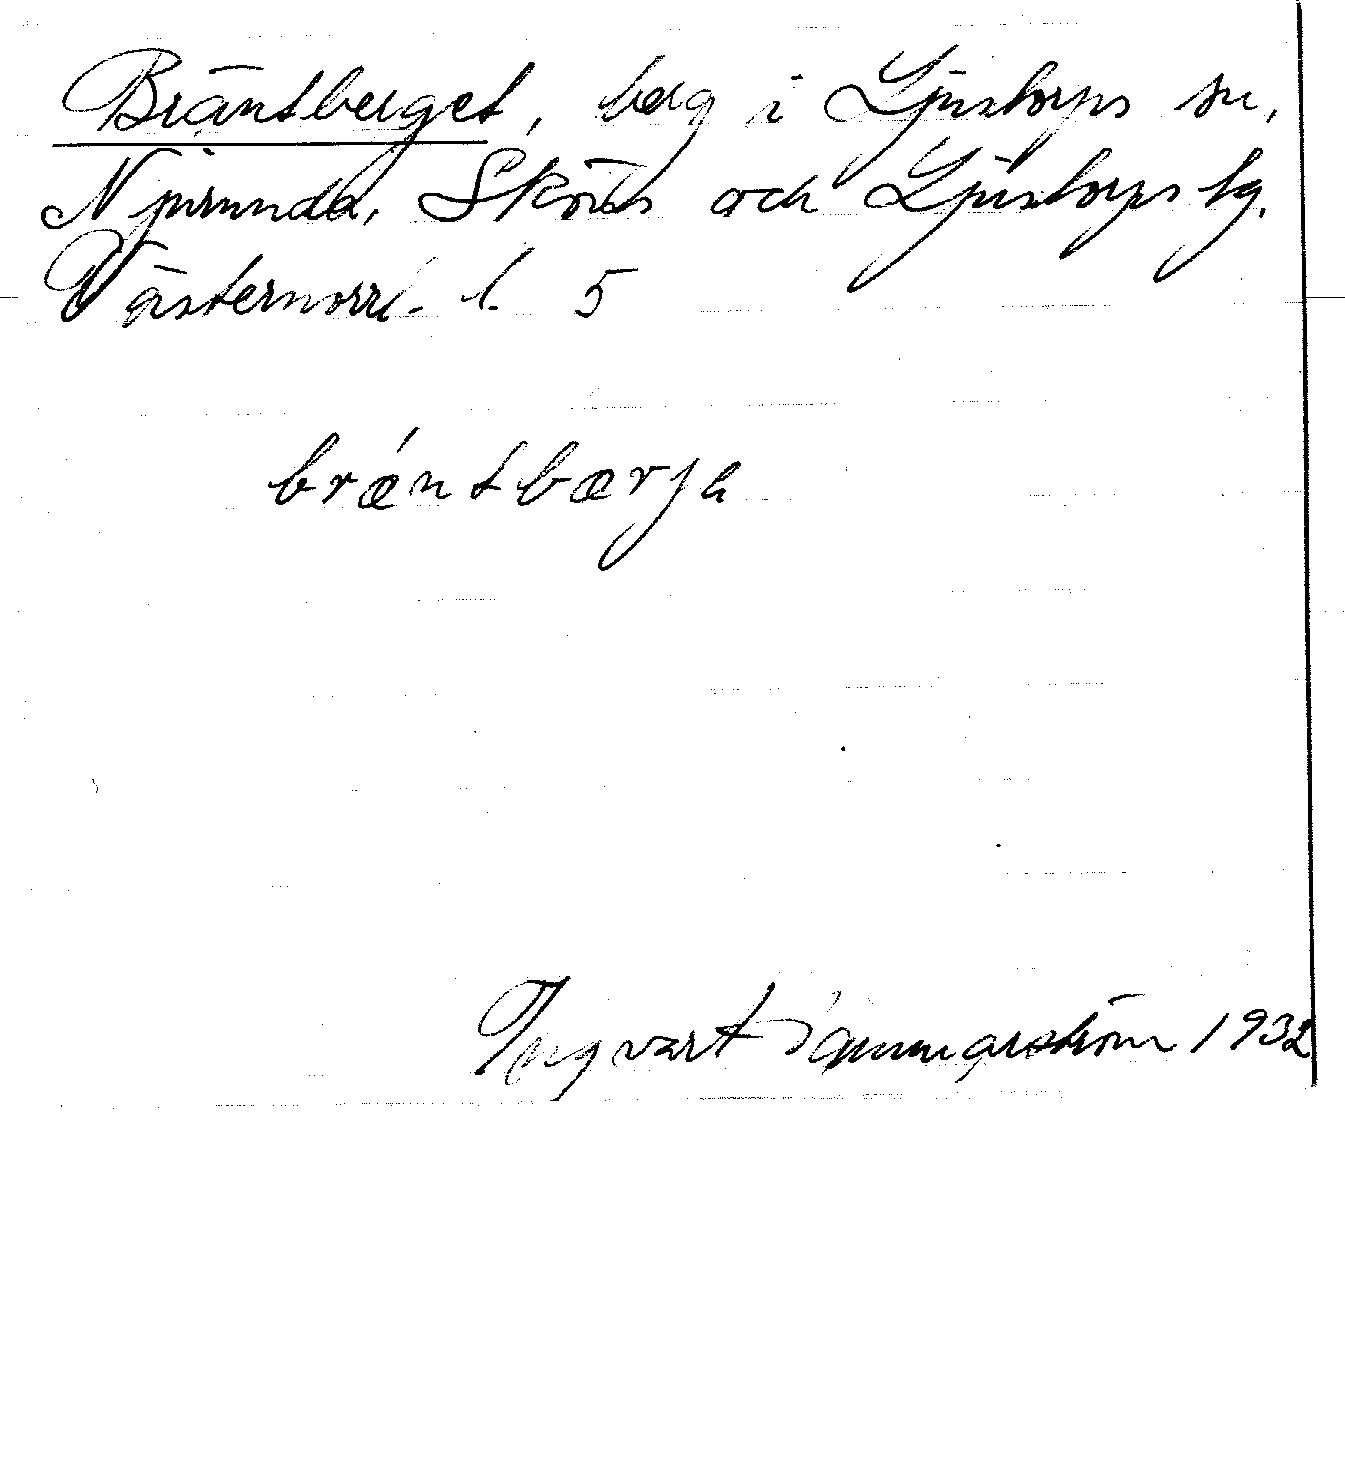 Bräntberget, berg i Ljustorps sn,
Njurunda, Sköns och Ljustorps tg.
Västernorrl. l. 5
brǽntbærja
Ingvart Hammarström 1932